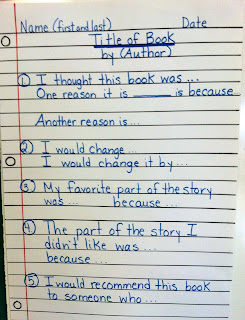 Name (first and last) Date
Title of Book
by (Author)
① I thought this book was ...
One reason it is ______ is because
Another reason is ...
② I would change ...
I would change it by ...
③ My favorite part of the story
was ... because ...
④ The part of the story I
didn't like was ...
because ...
⑤ I would recommend this book
to someone who ...